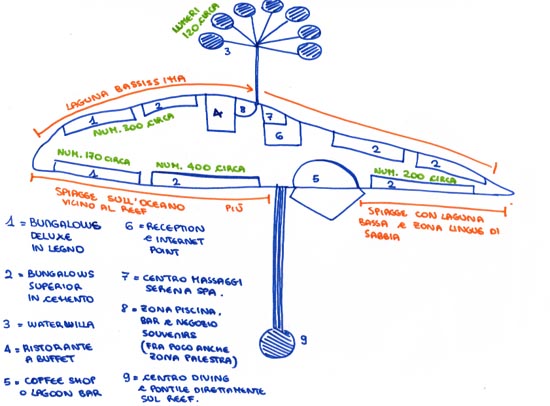 NUMERI
120 CIRCA
3
LAGUNA BASSISSIMA
1
2
NUM. 300 CIRCA
4
8
7
6
2
2
NUM. 170 CIRCA
NUM. 400 CIRCA
NUM. 200 CIRCA
1
2
5
2
SPIAGGE SULL'OCEANO PIÙ
VICINO AL REEF
SPIAGGE CON LAGUNA
BASSA E ZONA LINGUE DI
SABBIA
1 = BUNGALOWS
DELUXE
IN LEGNO
2 = BUNGALOWS
SUPERIOR
IN CEMENTO
3 = WATERVILLA
4 = RISTORANTE
A BUFFET
5 = COFFEE SHOP
O LAGOON BAR
6 = RECEPTION
E INTERNET
POINT
7 = CENTRO MASSAGGI
SERENA SPA.
8 = ZONA PISCINA,
BAR E NEGOZIO
SOUVENIRS
(FRA POCO ANCHE
ZONA PALESTRA)
9 = CENTRO DIVING
E PONTILE DIRETTAMENTE
SUL REEF.
9